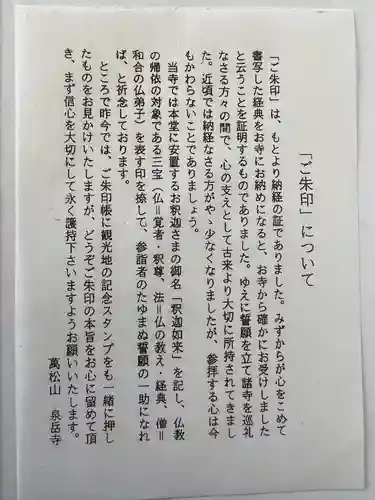 「ご朱印」について
「ご朱印」は、もとより納経の証でありました。みずからが心をこめて
書写した経典をお寺にお納めになると、お寺から確かにお受けしました
と云うことを証明するものでありました。ゆえに誓願を立て諸寺を巡礼
なさる方々の間で、心の支えとして古来より大切に所持されてきまし
た。近頃では納経なさる方がやゝ少なくなりましたが、参拝する心は今
もかわらないことでありましょう。
当寺では本堂に安置するお釈迦さまの御名「釈迦如来」を記し、仏教
の帰依の対象である三宝（仏＝覚者・釈尊、法＝仏の教え・経典、僧＝
和合の仏弟子）を表す印を捺して、参詣者のたゆまぬ誓願の一助になれ
ば、と祈念しております。
ところで昨今では、ご朱印帳に観光地の記念スタンプをも一緒に押し
たものをお見かけいたしますが、どうぞご朱印の本旨をお心に留めて頂
き、まず信心を大切にして永く護持下さいますようお願いいたします。
萬松山　泉岳寺